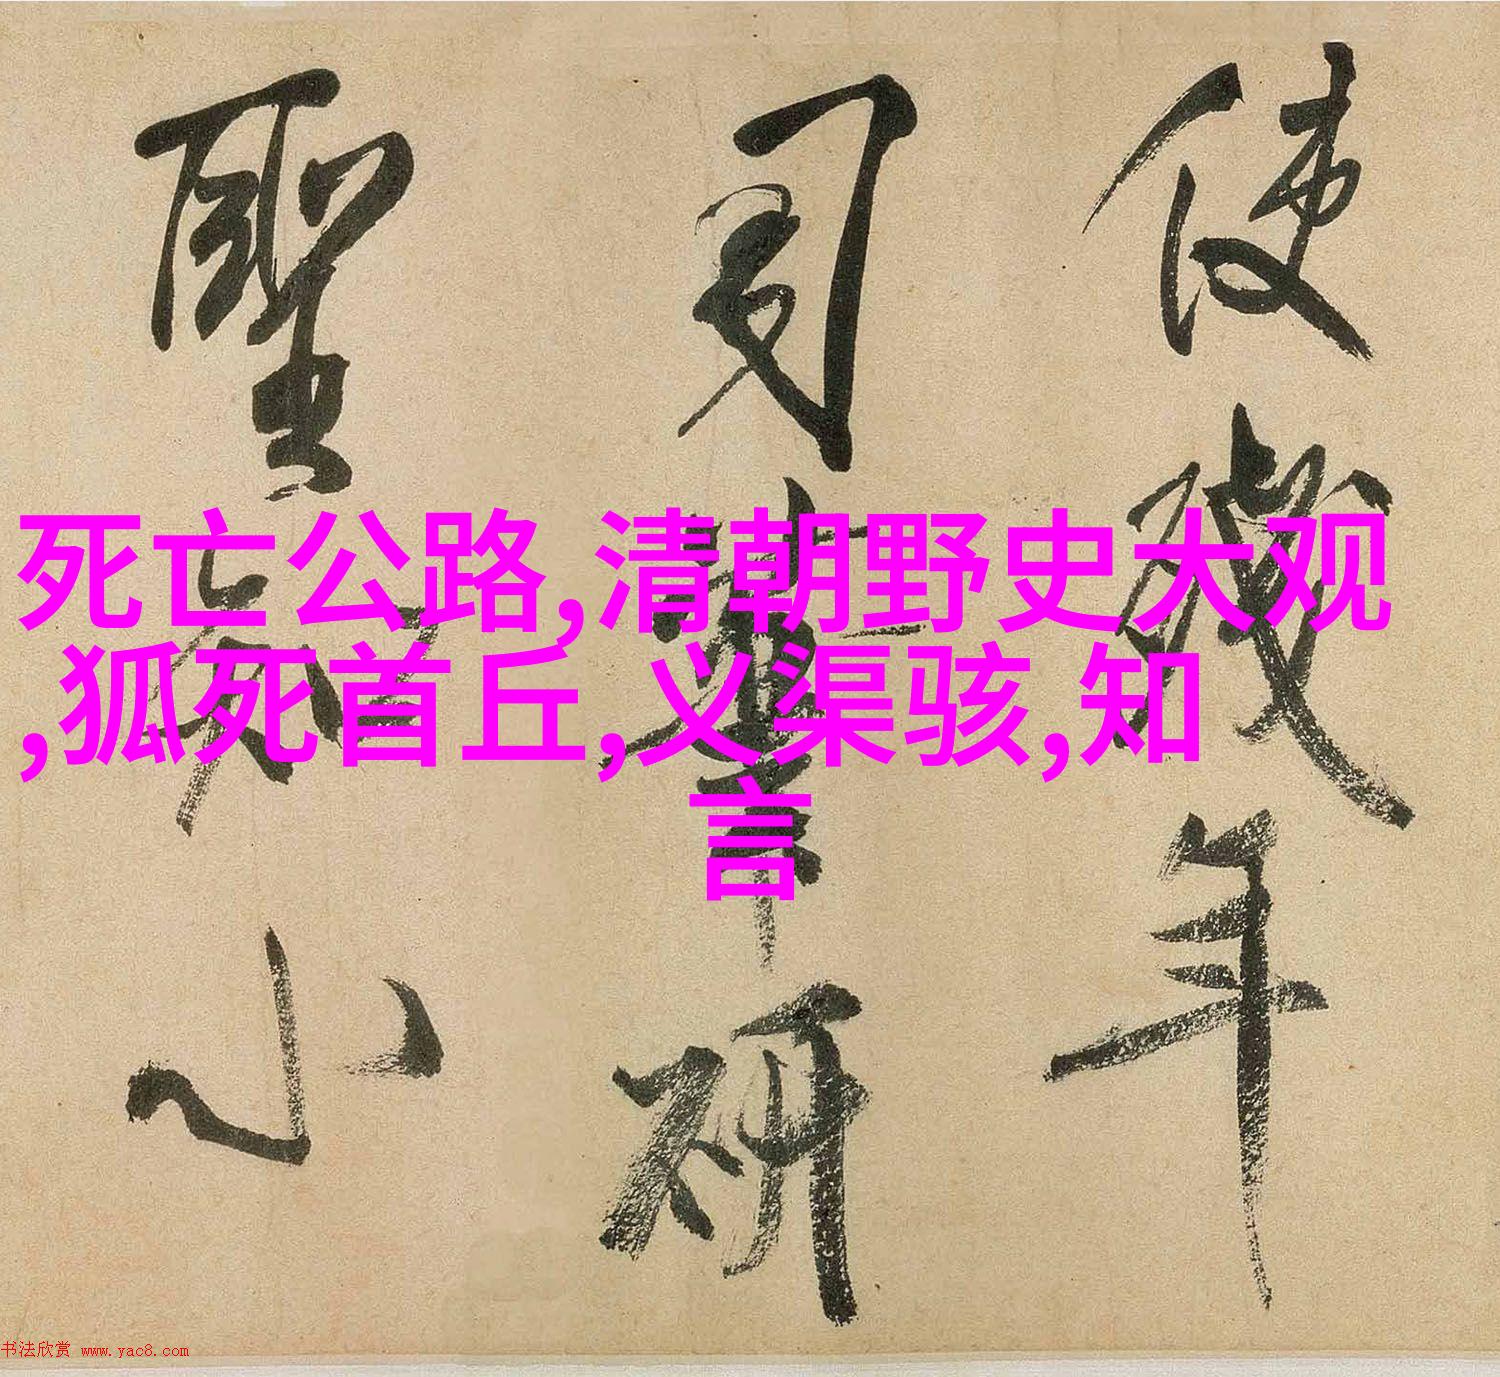 死亡公路,清朝野史大观
,狐死首丘,义渠骇,知
言
使残年
司
研
聖
小
书法欣赏 www.yac8.com